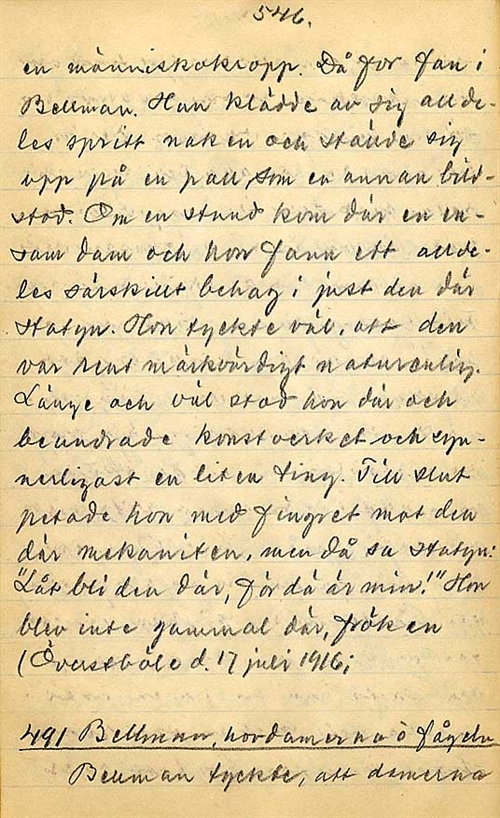 546.
en människokropp. Då for fan i
Bellman. Han klädde av sig allde-
les spritt naken och ställde sig
upp på en pall, som en annan bild-
stod. Om en stund kom där en en-
sam dam och hon fann ett allde-
les särskillt behag i just den där
statyn. Hon tyckte väl, att den
var rent märkvärdigt naturenlig.
Länge och väl stod hon där och
beundrade konstverket och syn-
nerligast en liten ting. Till slut
petade hon med fingret mot den
där mekaniken, men då sa statyn:
"Låt bli den där, för dä är min!" Hon
blev inte gammal där, fröken
(Överstböle d. 17 juli 1916;
491 Bellman, hovdamerna o fågeln
Bellman tyckte, att damerna